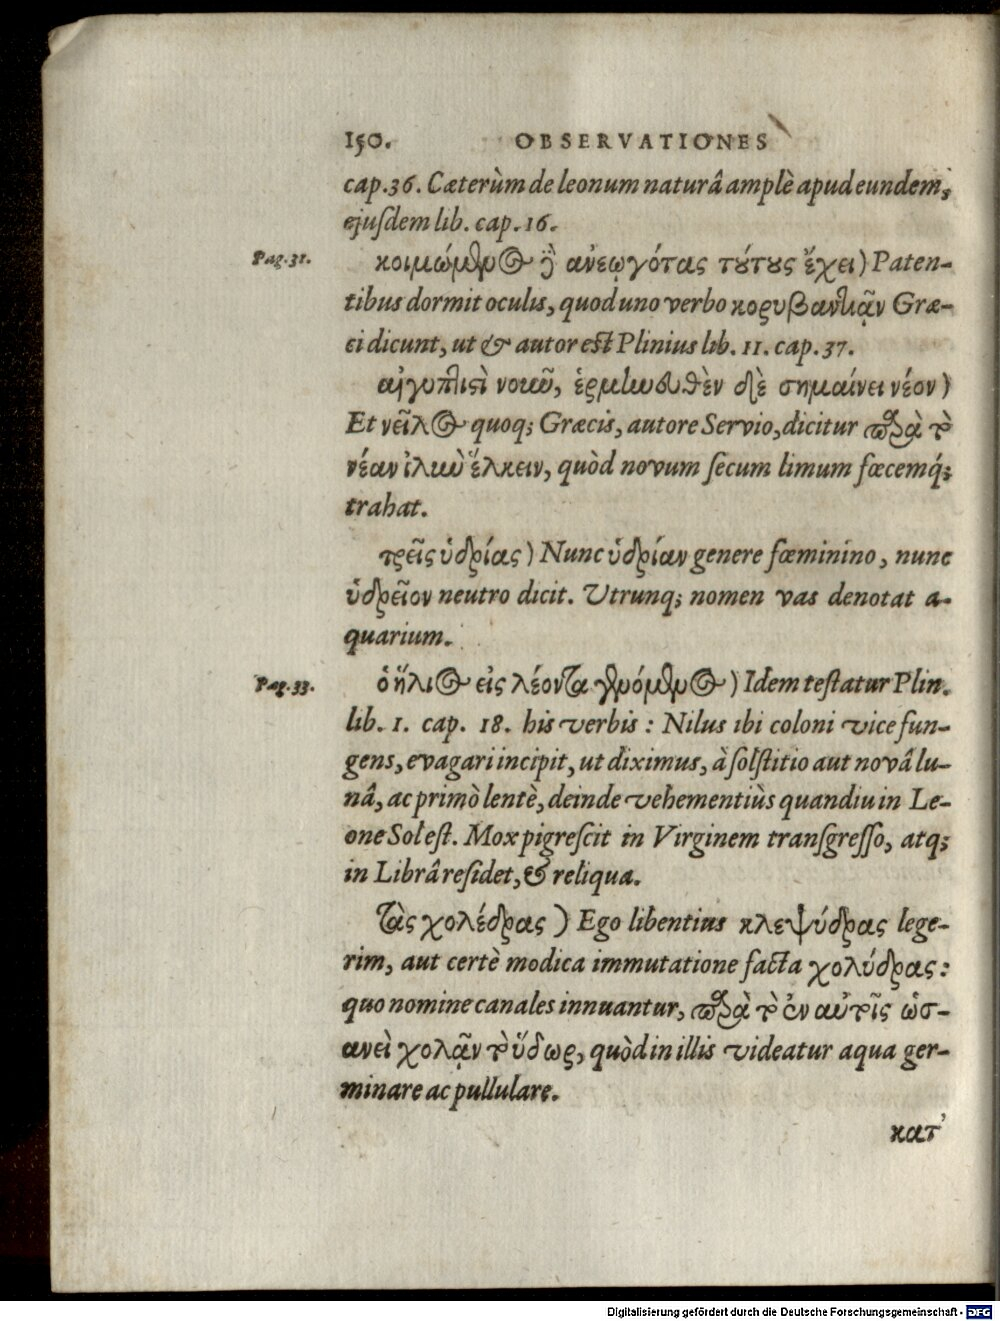 150. OBSERVATIONES
cap.36. Cæterùm de leonum naturâ amplè apud eundem,
ejusdem lib. cap. 16.
Pag. 31.
κοιμώμενος ἢ ἀνεῳγότας τούτους ἔχει) Paten-
tibus dormit oculis, quod uno verbo κορυβαντιᾷν Græ-
ci dicunt, ut & autor est Plinius lib. 11. cap. 37.
αἰγυπτιστὶ νουῦ, ἑρμηνευθὲν δὲ σημαίνει νέον)
Et νεῖλος quoq; Græcis, autore Servio, dicitur παρὰ τὸ
νέαν ἰλιὼ ἕλκειν, quòd novum secum limum fœcemq́;
trahat.
τρεῖς ὑδρίας) Nunc ὑδρίαν genere fœminino, nunc
ὑδρεῖον neutro dicit. Utrunq; nomen vas denotat a-
quarium.
Pag. 33.
ὁ ἥλιος εἰς λέοντα γενόμενος) Idem testatur Plin.
lib. 1. cap. 18. his verbis : Nilus ibi coloni vice fun-
gens, evagari incipit, ut diximus, à solstitio aut novâ lu-
nâ, ac primò lentè, deinde vehementiùs quandiu in Le-
one Sol est. Mox pigrescit in Virginem transgresso, atq;
in Librâ residet, & reliqua.
τὰς χολέδρας) Ego libentius κλεψύδρας lege-
rim, aut certè modica immutatione facta χολύδρας:
quo nomine canales innuantur, παρὰ τὸ ἐν αὐτοῖς ὡσ-
ανεὶ χολᾷν τὸ ὕδωρ, quòd in illis videatur aqua ger-
minare ac pullulare.
κατ'
Digitalisierung gefördert durch die Deutsche Forschungsgemeinschaft - DFG